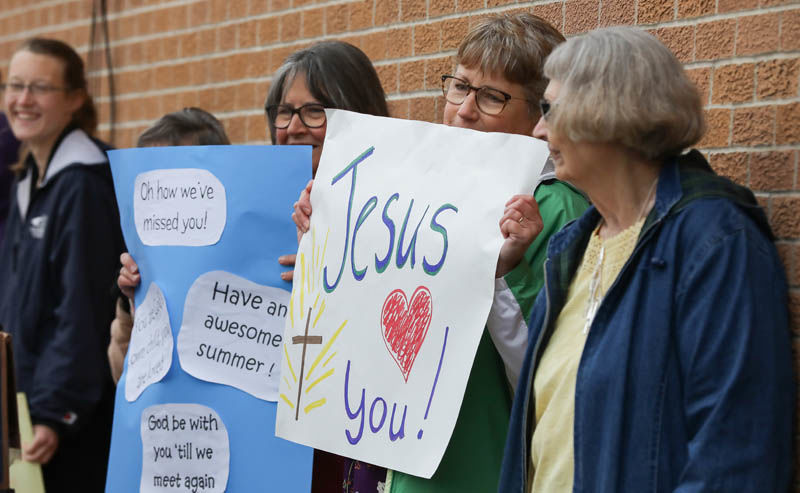 Oh how we've
missed you!
Have an
awesome
summer!
God be with
you 'till we
meet again
Jesus
you!